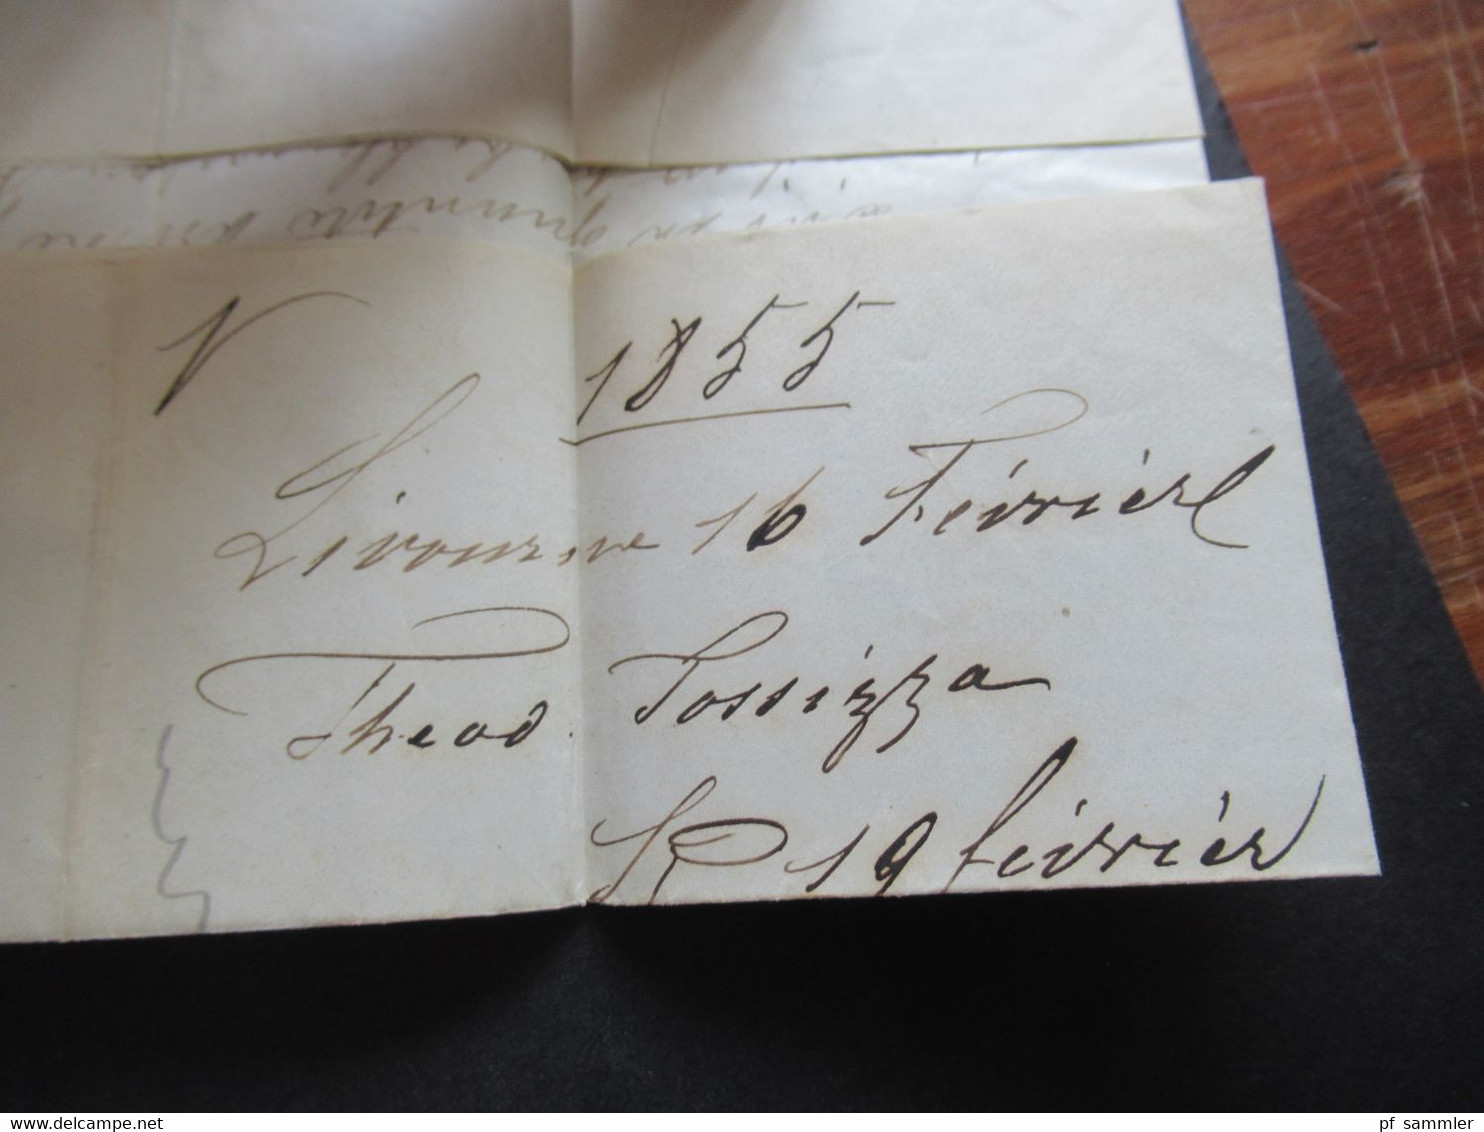 1855
Livourne 16 Février
Theod. Tossizza
19 février
© delcampe.net
pf_sammler